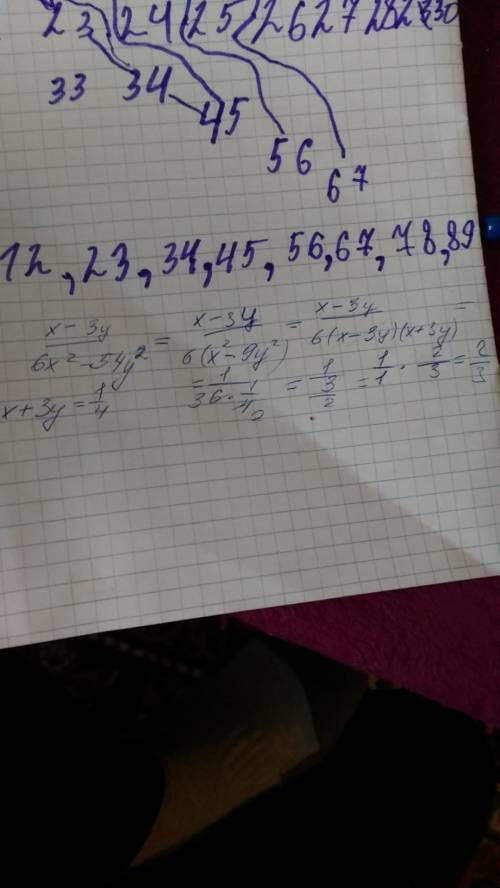 23 24 25 26 27 28 29 30
33 34
45
56
67
12, 23, 34, 45, 56, 67, 78, 89
x-3y / 6x²-54y² = x-3y / 6(x²-9y²) = x-3y / 6(x-3y)(x+3y) =
x+3y = 1/4 = 1 / 36·1/4 = 1 / 3/2 = 1/1 · 2/3 = 2/3